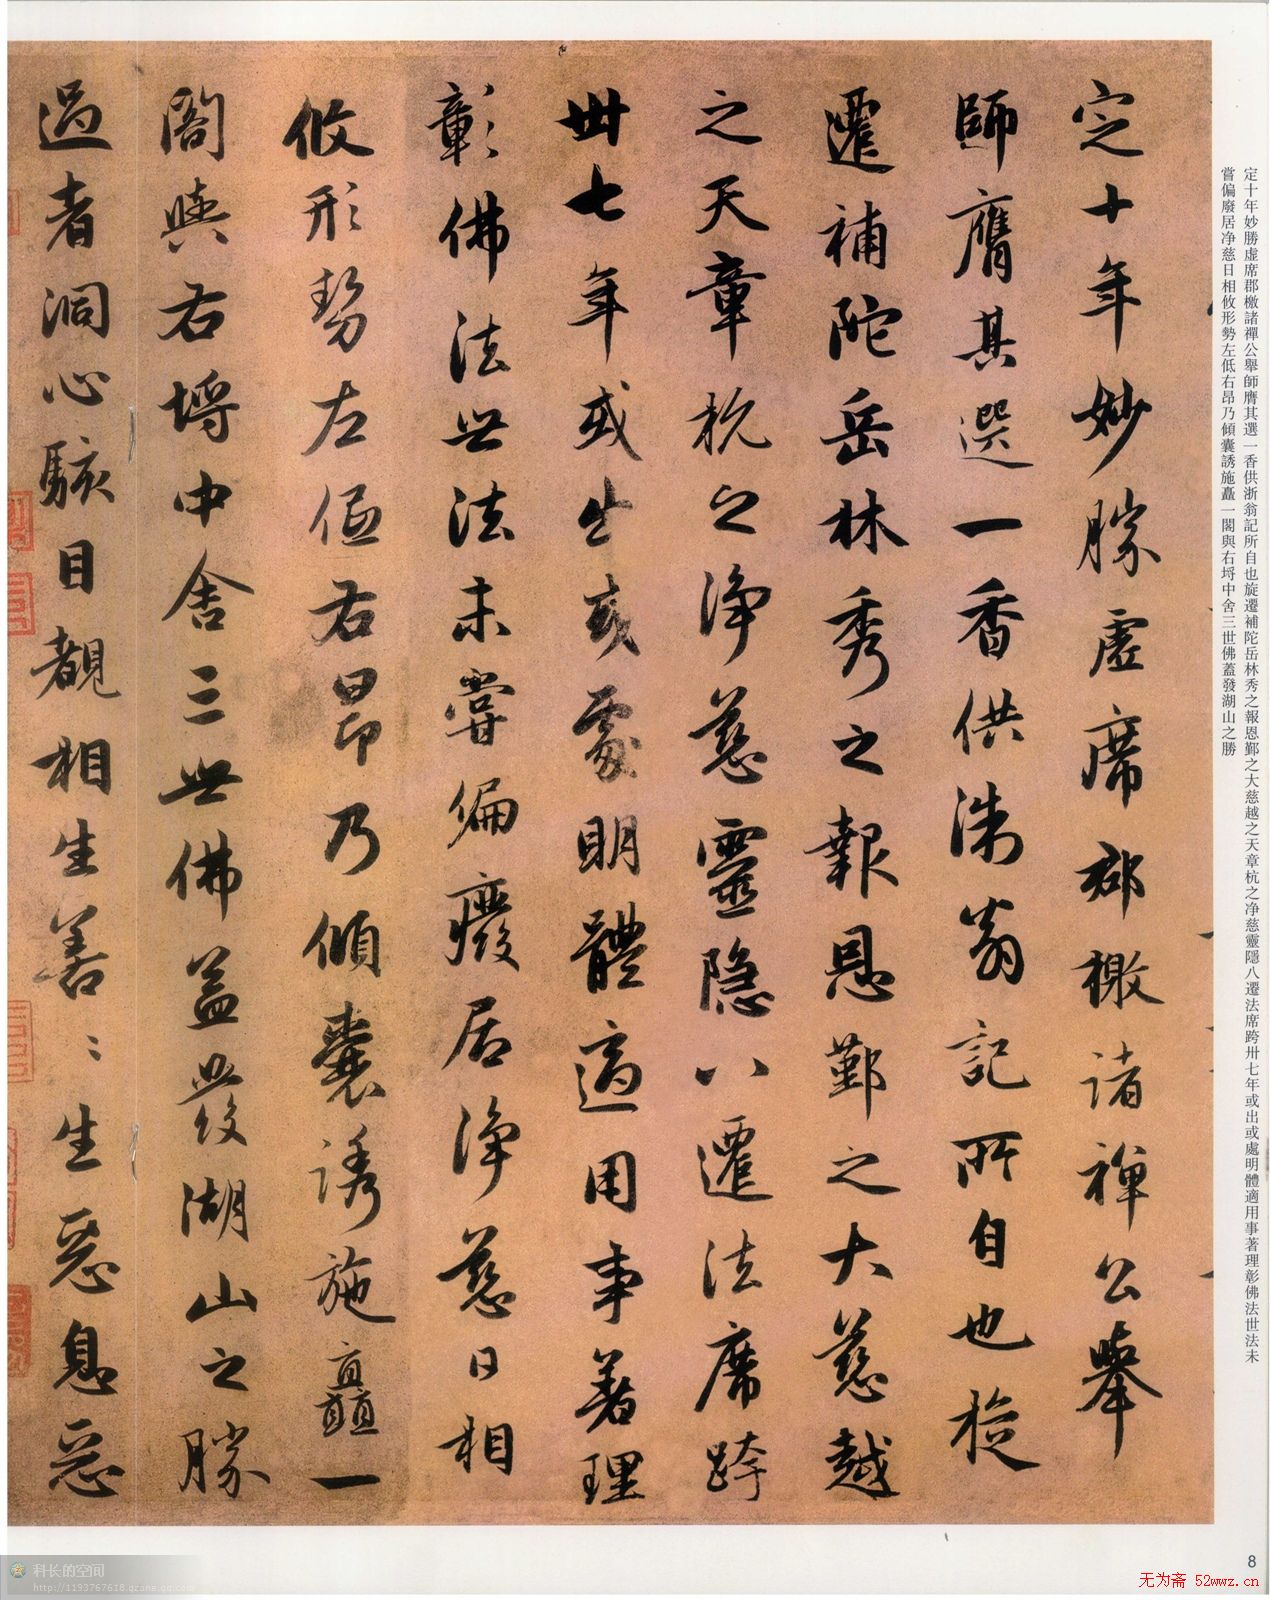 定十年妙勝虛席郡檄諸禪公舉
師膺其選一香供浙翁記所自也旋
遷補陀岳林秀之報恩鄞之大慈越
之天章杭之淨慈靈隱八遷法席跨
卅七年或出或處明體適用事著理
彰佛法世法未嘗偏廢居淨慈日相
攸形勢左低右昂乃傾囊誘施矗一
閣與右埒中舍三世佛蓋發湖山之勝
過者洞心駭目覩相生善善生惡息惡
定十年妙勝虛席郡檄諸禪公舉師膺其選一香供浙翁記所自也旋遷補陀岳林秀之報恩鄞之大慈越之天章杭之净慈靈隱八遷法席跨卅七年或出或處明體適用事著理彰佛法世法未
嘗偏廢居净慈日相攸形勢左低右昂乃傾囊誘施矗一閣與右埒中舍三世佛蓋發湖山之勝
8
科长的空间
http://1193767618.qzone.qq.com
无为斋 52wwz.cn